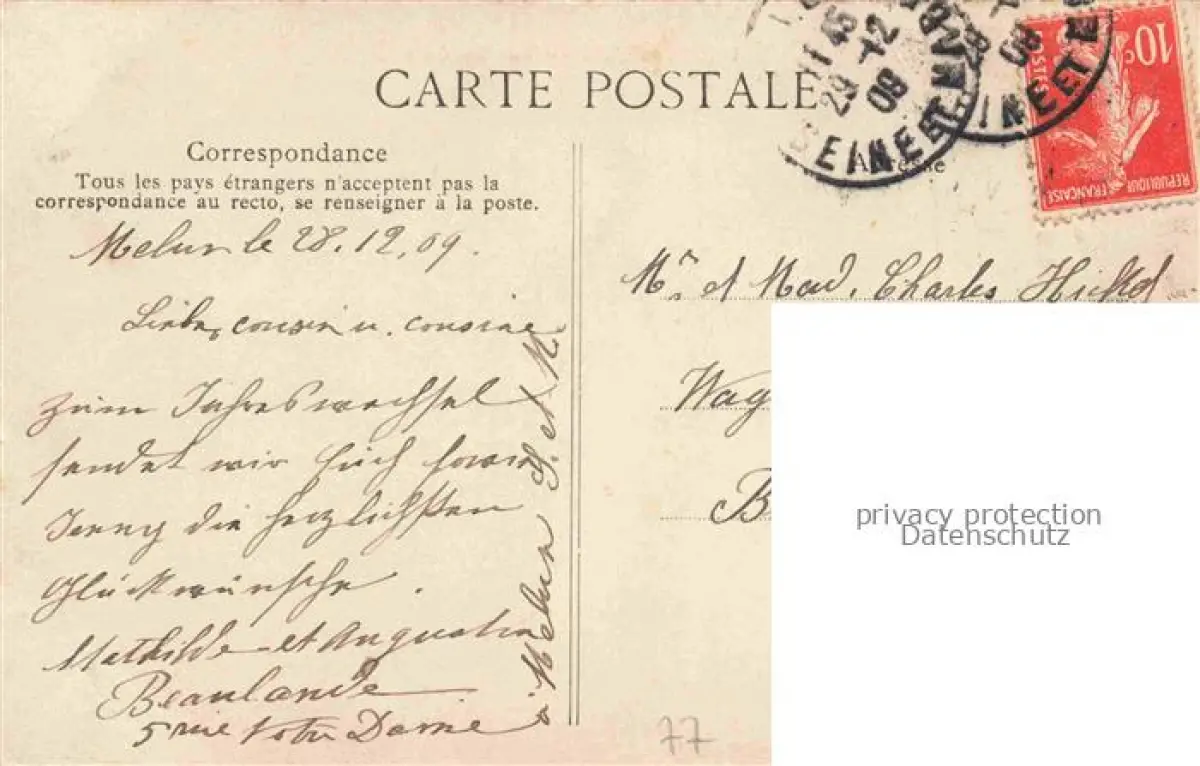 CARTE POSTALE
Correspondance
Tous les pays étrangers n'acceptent pas la
correspondance au recto, se renseigner à la poste.
Melun le 28.12.09.
Liebe cousin u. cousine
zum Jahreswechsel
sendet wir Euch sowie
Jenny die herzlichsten
Glückwünsche.
Mathilde et Augustin
Beaulande
5 rue Notre Dame
à Melun S. et M.
11 45
29 -12
09
SEINE ET MARNE
09
SEINE ET M
10c
POSTES
REPUBLIQUE FRANÇAISE
Adresse
Mr. et Mad. Charles
Wag
B
privacy protection
Datenschutz
77